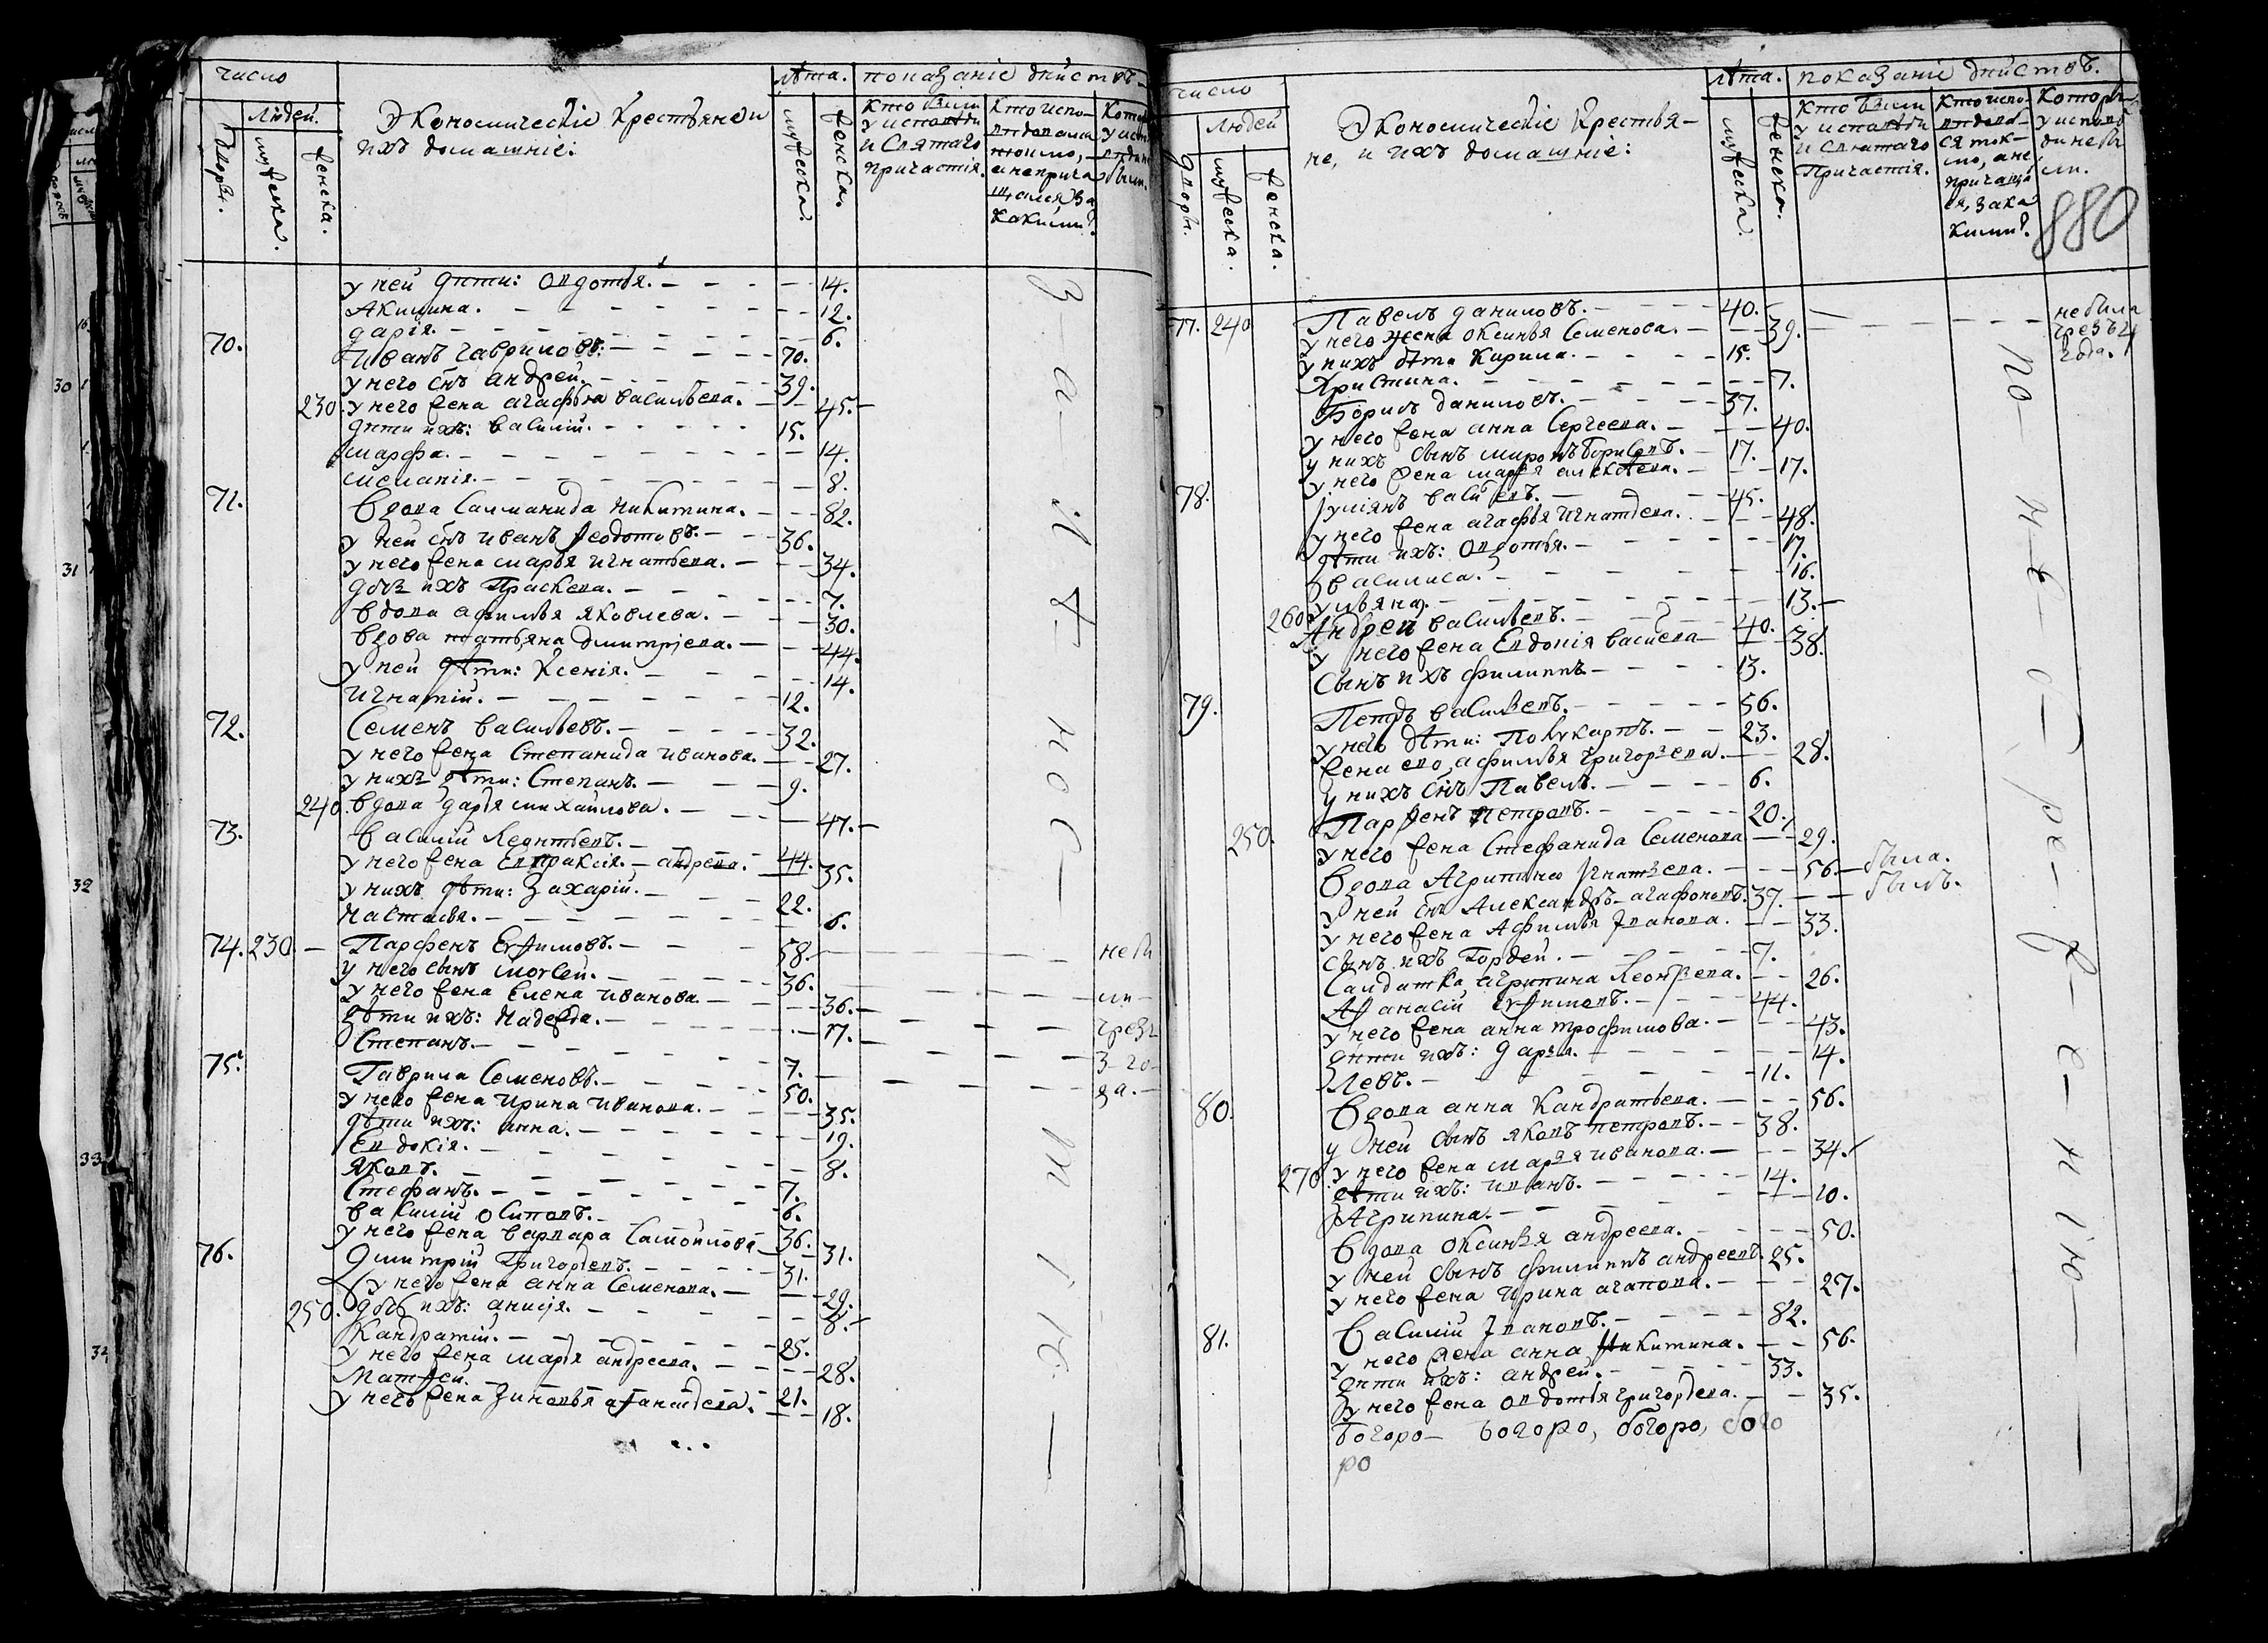 число
Людей.
Дворы.
мужеска.
женска.
Экономическіе крестьяне и
ихъ домашніе:
лѣта.
мужеска.
женска.
показаніе дѣйствъ
кто были
у исповѣди
и Святаго
причастія.
кто испо-
вѣдались
токмо,
а неприча
щались, за
какими?
у ней дѣти: Овдотья. 14.
Акилина. 12.
дарія. 6.
70. Иванъ Гавриловъ. 70.
у него снъ андрей. 39.
230. у него жена агафья васильева. 45.
дѣти ихъ: василій. 15.
марфа. 14.
меланія. 8.
71. Вдова Саламанида никитина. 82.
у ней снъ иванъ Ѳеодотовъ. 36.
у него жена марья игнатьева. 34.
дочь ихъ Праскева. 7.
вдова афимья яковлева. 30.
вдова татьяна дмитріева. 44.
у ней дѣти: Ксенія. 14.
игнатій. 12.
72. Семенъ васильевъ. 32.
у него жена Степанида иванова. 27.
у нихъ дѣти: Степанъ. 9.
240. вдова дарья михаилова. 47.
73. василій Леонтьевъ. 44.
у него жена Евпраксія. андреева. 35.
у нихъ дѣти: Захарій. 22.
настасья. 6.
74. 230 Парфенъ Евѳимовъ. 58. небы
у него сынъ моѵсей. 36.
у него жена Елена иванова. 36. ли
дѣти ихъ: надежда. 17. чрезъ
Степанъ. 7. 3 го
75. Гаврила Семеновъ. 50. да.
у него жена ирина иванова. 35.
дѣти ихъ: анна. 19.
Евдокія. 8.
яковъ. 7.
Стефанъ. 6.
василій осиповъ. 36.
у него жена варвара Самойлова 31.
76. Дмитрій Григорьевъ. 31.
у него жена анна Семенова. 29.
250. дочь ихъ: анисія. 8.
Кандратій. 25.
у него жена марья андреева. 28.
Матѳей. 21.
у него жена Зиновья аѳанасьева. 18.
число
Людей
дворы.
мужеска.
женска.
Экономическіе крестья-
не, и ихъ домашніе:
лѣта.
мужеска.
женска.
показаніе дѣйствъ.
кто были
у исповѣди
и Святаго
Причастія.
кто испо-
вѣдал-
ся ток-
мо, а не
причащал
ся, за ка
кими?
которы
у исповѣ
ди не бы
ли.
880
77. 240 Павелъ даниловъ. 40. небыли
у него жена оксинья Семенова. 39. чрезъ 4
у нихъ дѣти Кирила. 15. года.
Христина. 7.
Борисъ даниловъ. 37.
у него жена анна Сергеева. 40.
у нихъ сынъ миронъ борисовъ. 17.
у него жена марья алексѣева. 17.
78. Іуліянъ васильевъ. 45.
у него жена агафья игнатьева. 48.
дѣти ихъ: Овдотья. 17.
василиса. 16.
ульяна. 13.
260 Андрей васильевъ. 40.
у него жена Евдокія васильева 38.
Сынъ ихъ филиппъ 13.
79. Петръ васильевъ. 56.
у него дѣти: Поликарпъ. 23.
жена его, афимья григорьева. 28.
у нихъ снъ Павелъ. 6.
Парфенъ петровъ. 20.
250. у него жена Стефанида Семенова 29.
Вдова Агрипина Игнатьева. 56. была.
у ней снъ Александръ агафоновъ. 37. былъ.
у него жена Афимья Іванова. 33.
сынъ ихъ Гордей. 7.
Салдатка, агрипина Леонтьева. 26.
Аѳанасій Евѳимовъ. 44.
у него жена анна трофимова. 43.
дѣти ихъ: дарья. 14.
Левъ. 11.
80. Вдова анна Кандратьева. 56.
у ней сынъ яковъ петровъ. 38.
270 у него жена марья иванова. 34.
дѣти ихъ: иванъ. 14.
Агрипина. 10.
Вдова оксинья андреева. 50.
у ней сынъ филиппъ андреевъ. 25.
у него жена ирина агапова. 27.
81. Василій Івановъ. 82.
у него жена анна никитина. 56.
дѣти ихъ: андрей. 33.
у него жена овдотья григорьева. 35.
богоро- богоро, богоро, бого
ро